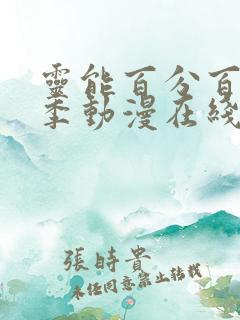 靈能百分百
季動漫在綫
張時貴
未經同意禁止轉載